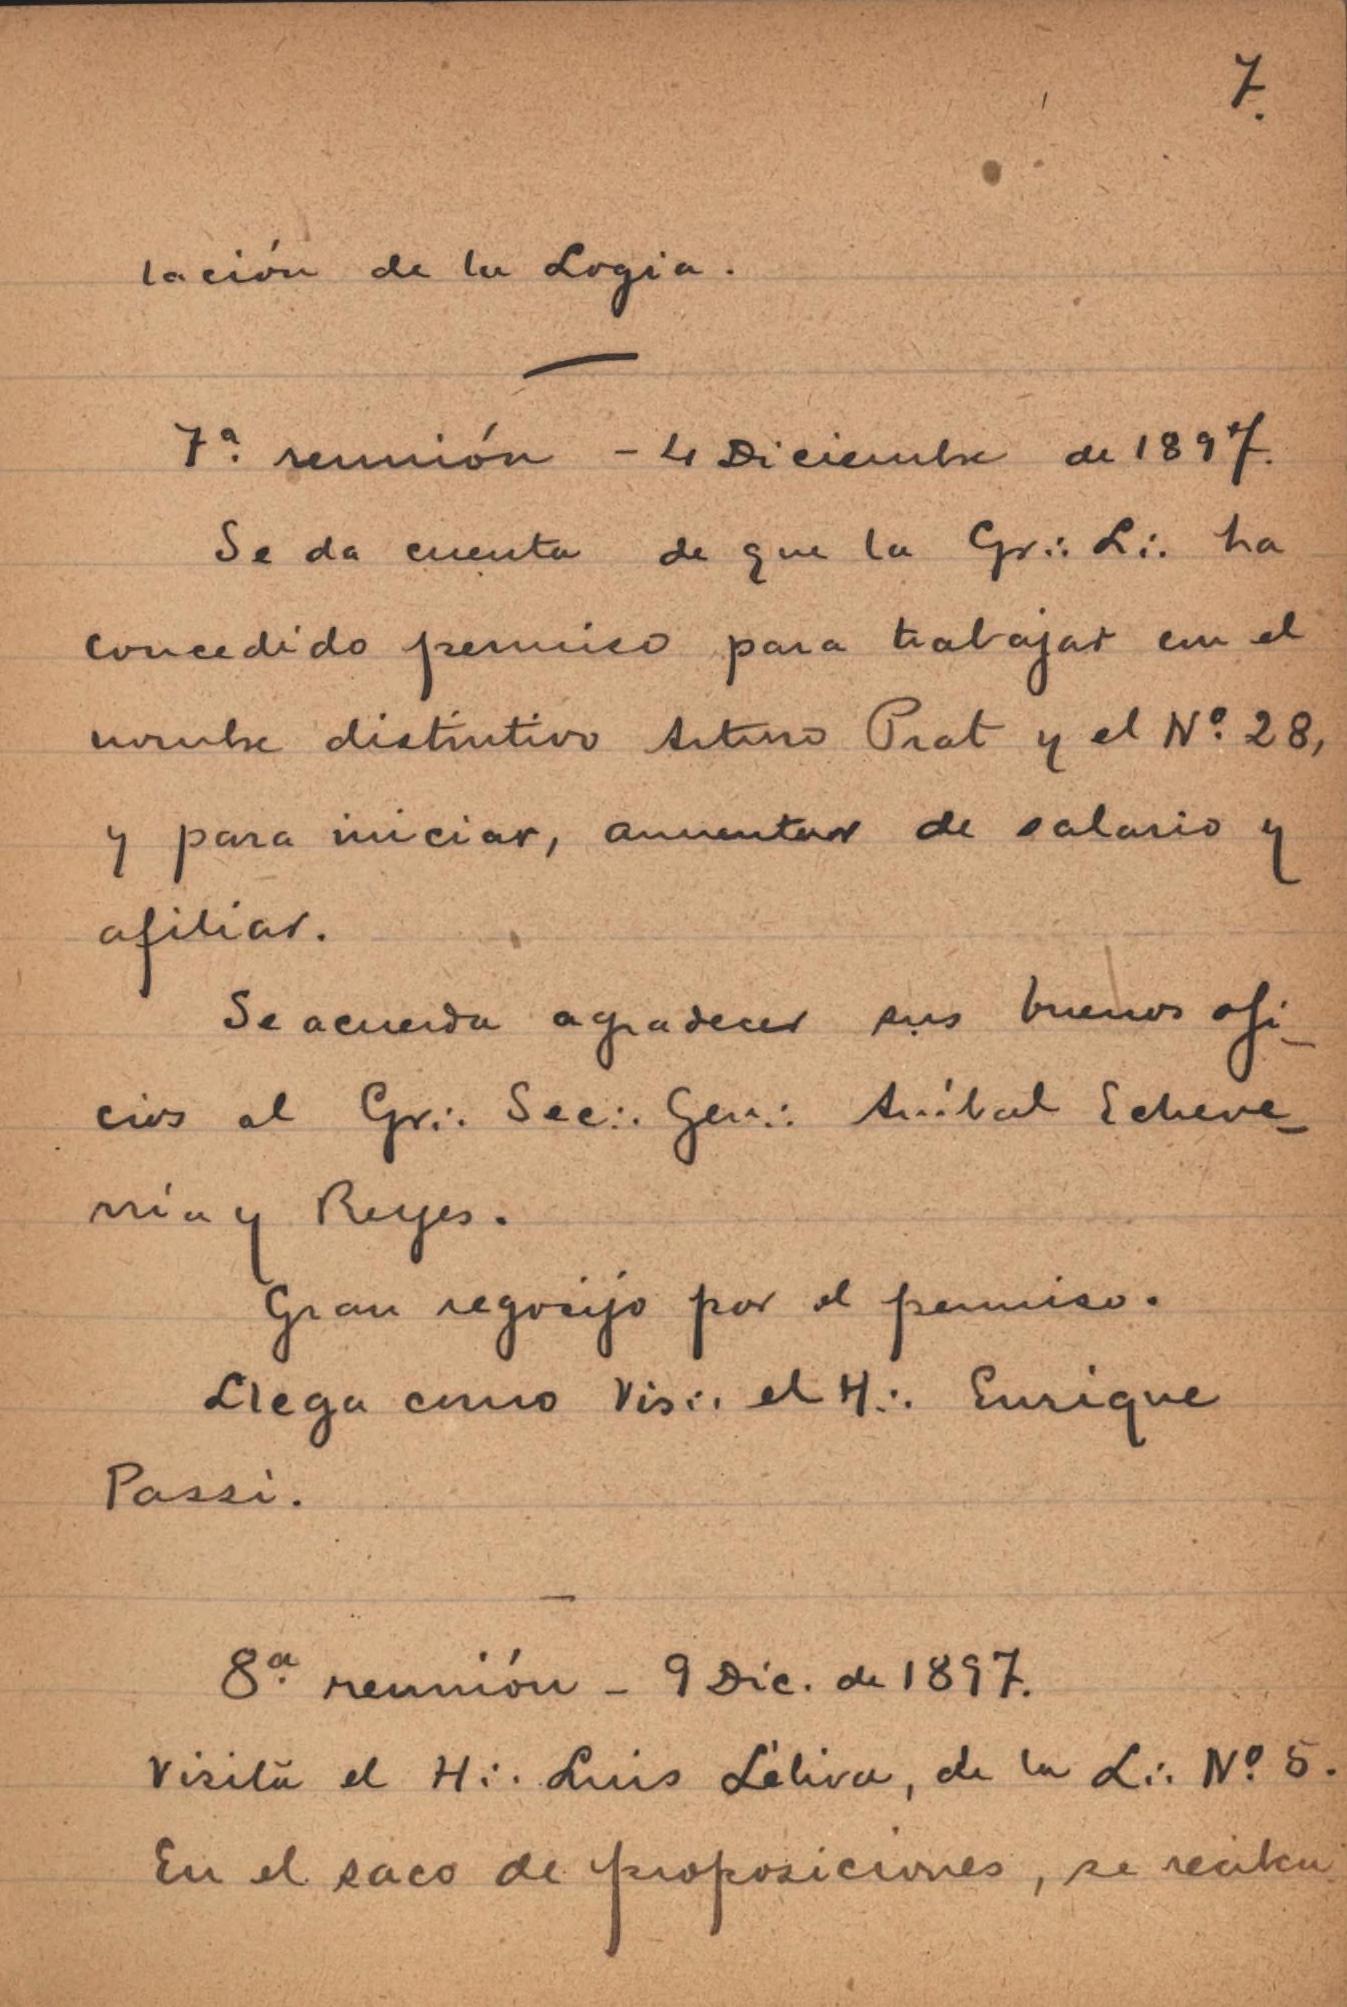 7.
lación de la Logia.
7ª. reunión - 4 Diciembre de 1897.
Se da cuenta de que la Gr∴ L∴ ha
concedido permiso para trabajar con el
nombre distintivo Arturo Prat y el Nº 28,
y para iniciar, aumentar de salario y
afiliar.
Se acuerda agradecer sus buenos ofi-
cios al Gr∴ Sec∴ Gen∴ Aníbal Echeve-
rría y Reyes.
Gran regosijo por el permiso.
Llega como Vis∴ el H∴ Enrique
Passi.
8ª. reunión - 9 Dic. de 1897.
Visita el H∴ Luis de la L∴ Nº 5.
En el saco de proposiciones, se reciben